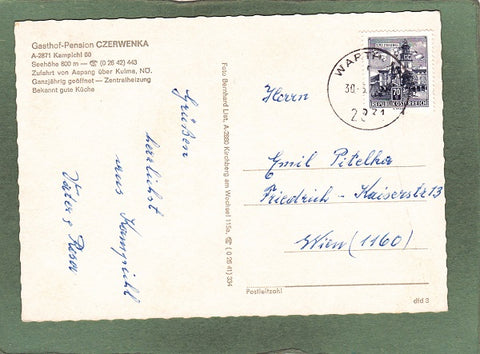 Gasthof-Pension CZERWENKA
A-2871 Kampichl 60
Seehöhe 800 m — ☎ (0 26 42) 443
Zufahrt von Aspang über Kulma, NÖ.
Ganzjährig geöffnet — Zentralheizung
Bekannt gute Küche
Grüßen
herzlichst
aus Kampichl
Vater & Rosa
Foto Bernhard Lisa, A-2880 Kirchberg am Wechsel 115a, ☎ (0 26 41) 334
REPUBLIK ÖSTERREICH
70
30.
2831
Herrn
Emil Pitelka
Friedrich-Kaiserstr 13
Wien (1160)
Postleitzahl
dfd 3